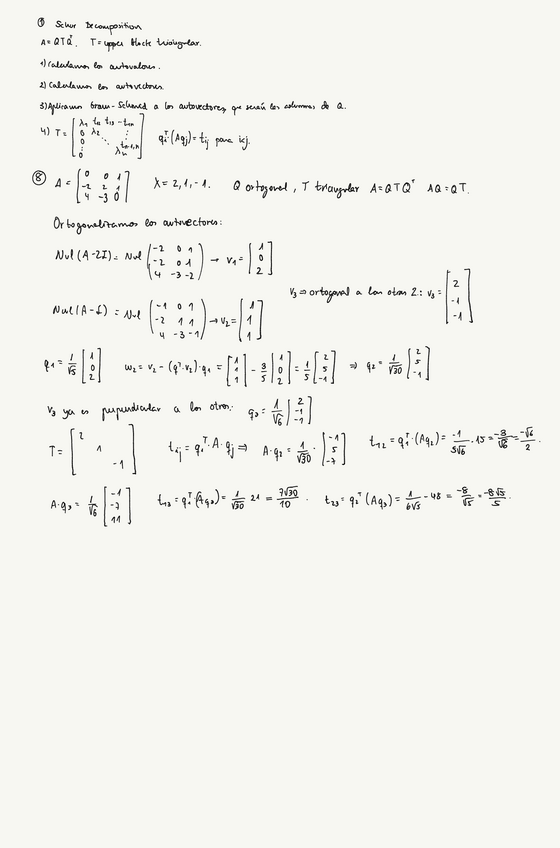 ① Schur Decomposition
A = QTQᵀ. T = upper block triangular.
1) Calculamos los autovalores.
2) Calculamos los autovectores.
3) Aplicamos Gram-Schmid a los autovectores, que serán las columnas de Q.
4) T = [λ₁ t₁₂ t₁₃ ⋯ t₁ₙ; 0 λ₂ ⋮; 0 ⋱ tₙ₋₁,ₙ; ⋮ 0 λₙ] qᵢᵀ(Aqⱼ) = tᵢⱼ para i<j.
⑧ A = [0 0 1; -2 2 1; 4 -3 0] λ = 2, 1, -1. Q ortogonal, T triangular A = QTQᵀ AQ = QT.
Ortogonalizamos los autovectores:
Nul(A-2I) = Nul (-2 0 1; -2 0 1; 4 -3 -2) → v₁ = [1; 0; 2]
v₃ ⇒ ortogonal a los otros 2: v₃ = [2; -1; -1]
Nul(A-I) = Nul (-1 0 1; -2 1 1; 4 -3 -1) → v₂ = [1; 1; 1]
q₁ = 1/√5 [1; 0; 2] w₂ = v₂ - (qᵀ·v₂)·q₁ = [1; 1; 1] - 3/5 [1; 0; 2] = 1/5 [2; 5; -1] ⇒ q₂ = 1/√30 [2; 5; -1]
v₃ ya es perpendicular a los otros: q₃ = 1/√6 [2; -1; -1]
T = [2; 1; -1] tᵢⱼ = qᵢᵀ·A·qⱼ ⇒ A·q₂ = 1/√30 · [-1; 5; -7] t₁₂ = q₁ᵀ·(Aq₂) = -1/5√6 · 15 = -3/√6 = -√6/2.
A·q₃ = 1/√6 [-1; -7; 11] t₁₃ = q₁ᵀ·(Aq₃) = 1/√30 21 = 7√30/10. t₂₃ = q₂ᵀ(Aq₃) = 1/6√5 -48 = -8/√5 = -8√5/5.